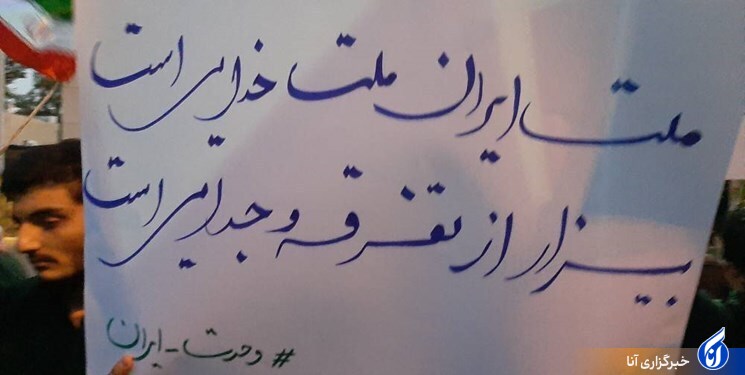 ملت ایران ملت خدایی است
بیزار از تفرقه و جدایی است
#وحدت-ایران
خبرگزاری آنا